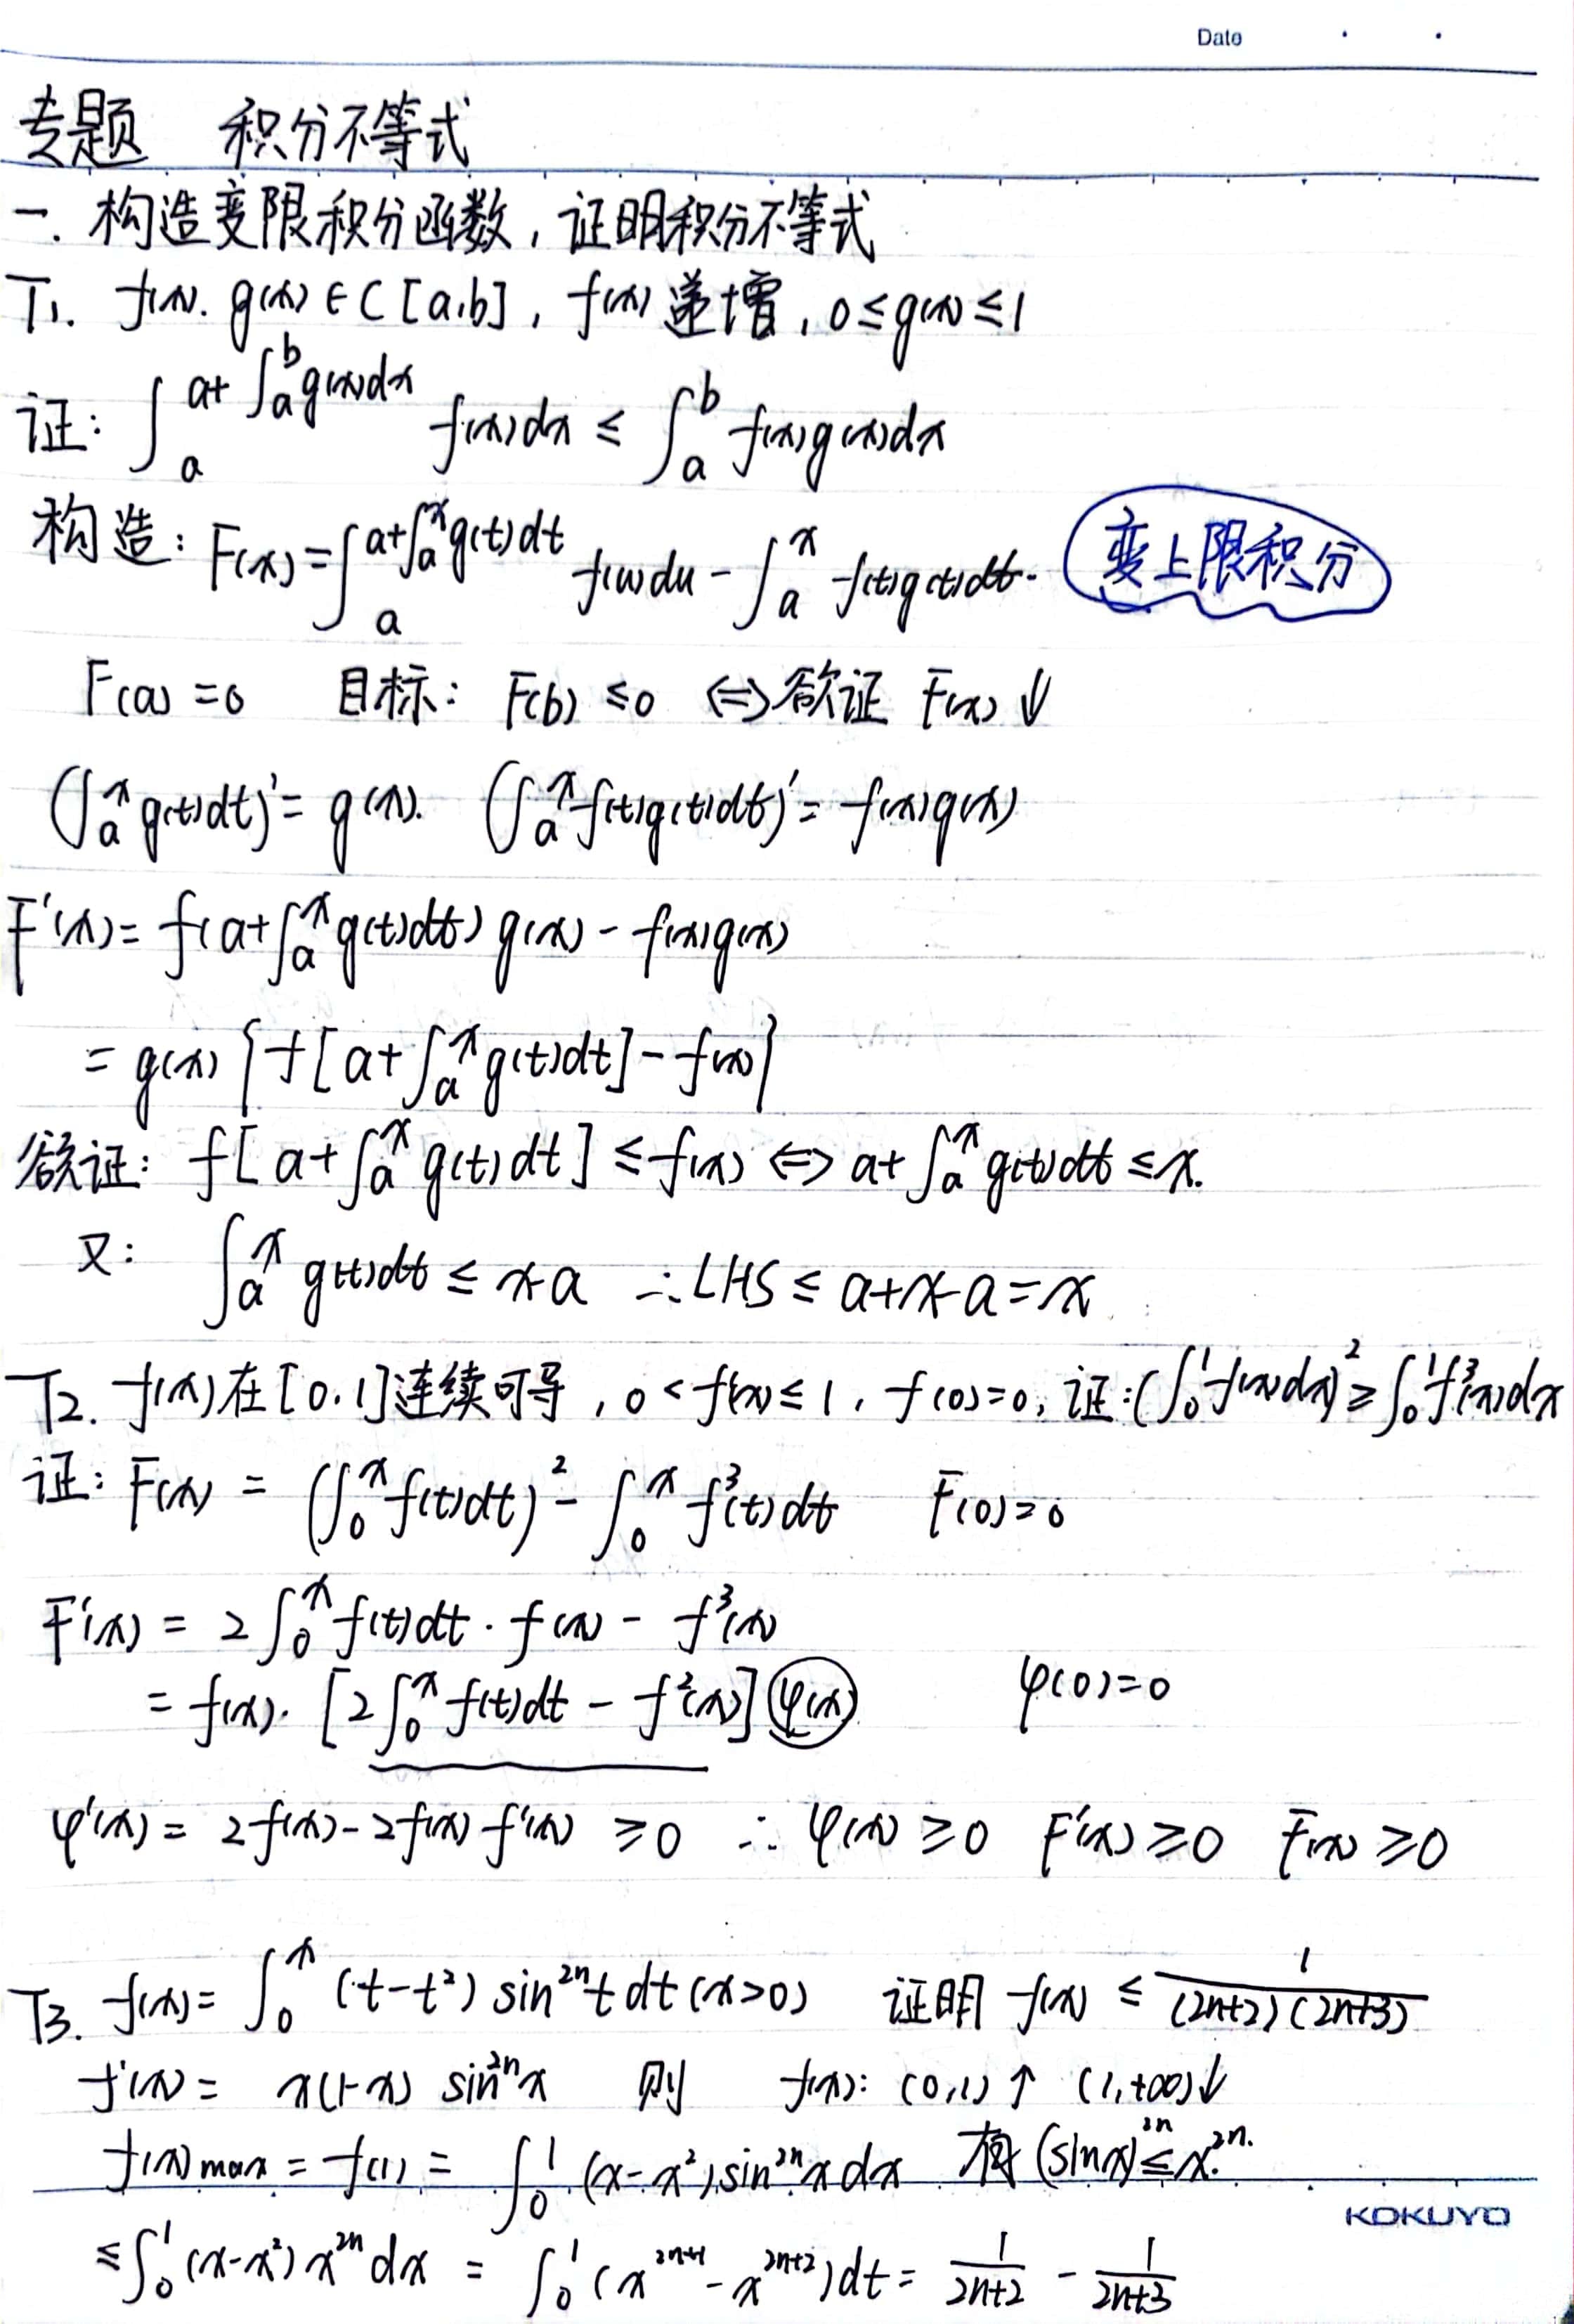 Date
专题 积分不等式
一. 构造变限积分函数, 证明积分不等式
T1. f(x). g(x) ∈ C [a,b], f(x) 递增, 0≤g(x)≤1
证: ∫_a^{a+∫_a^b g(x)dx} f(x)dx ≤ ∫_a^b f(x)g(x)dx
构造: F(x)=∫_a^{a+∫_a^x g(t)dt} f(u)du - ∫_a^x f(t)g(t)dt. 变上限积分
F(a)=0 目标: F(b)≤0 ⇔ 欲证 F(x)↓
(∫_a^x g(t)dt)'= g(x). (∫_a^x f(t)g(t)dt)'= f(x)g(x)
F'(x)= f(a+∫_a^x g(t)dt) g(x) - f(x)g(x)
= g(x) {f[a+∫_a^x g(t)dt] - f(x)}
欲证: f[a+∫_a^x g(t)dt] ≤ f(x) ⇔ a+∫_a^x g(t)dt ≤ x.
又: ∫_a^x g(t)dt ≤ x-a ∴ LHS ≤ a+x-a=x
T2. f(x)在[0.1]连续可导, 0<f'(x)≤1, f(0)=0, 证:(∫_0^1 f(x)dx)^2 ≥ ∫_0^1 f^3(x)dx
证: F(x) = (∫_0^x f(t)dt)^2 - ∫_0^x f^3(t)dt F(0)=0
F'(x) = 2∫_0^x f(t)dt · f(x) - f^3(x)
= f(x). [2∫_0^x f(t)dt - f^2(x)] φ(x) φ(0)=0
φ'(x)= 2f(x)-2f(x)f'(x) ≥0 ∴ φ(x)≥0 F'(x)≥0 F(x)≥0
T3. f(x)=∫_0^x (t-t^2) sin^{2n}t dt (x>0) 证明 f(x) ≤ 1/((2n+2)(2n+3))
f'(x)= x(1-x) sin^{2n}x 则 f(x): (0,1)↑ (1,+∞)↓
f(x)max = f(1) = ∫_0^1 (x-x^2)sin^{2n}x dx 有 (sinx)^{2n} ≤ x^{2n}.
≤∫_0^1 (x-x^2) x^{2n} dx = ∫_0^1 (x^{2n+1}-x^{2n+2})dt = 1/(2n+2) - 1/(2n+3)
KOKUYO